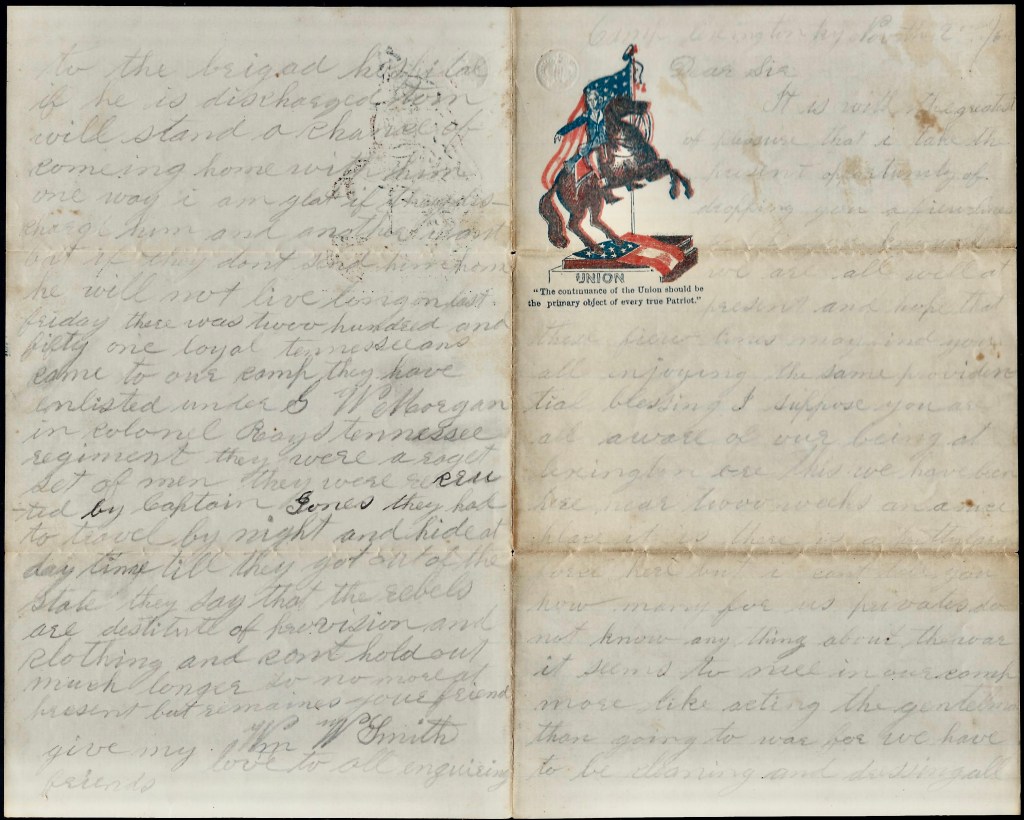 to the brigad hospital
if he is discharged tom
will stand a chance of
comeing home with him
one way i am glat if
charge him and another
but if the dont send him home
he will not live long on last
friday there was twoo hundred and
fifty one loyal tennesseeans
came to our camp they have
enlisted under G W Morgan
in colonel Rays tennessee
regiment they were a roget
set of men they were recru
ted by Captain Jones they had
to travel by night and hide at
day time till they got out of the
state they say that the rebels
are destitute of provision and
klothing and cant hold out
much longer so no more at
present but remaines your friend
Wm W Smith
give my love to all enquireing
friends
Camp Lexington Ky
Dear Sir
It is with the greatest
of pleasure that i take the
present oportunety of
droping you a few lines
we are all well at
UNION
"The continuance of the Union should be
the primary object of every true Patriot."
present and hope that
these few lines may find you
all enjoying the same providen
tial blessing I suppose you are
all aware of our being at
lexington ere this we have been
here near twoo weeks
place it is there is a
force here but i cant tell you
how many for us privates do
not know any thing about the war
it seems to mee in our camp
more like acting the gentelman
than going to war for we have
to be cleaning and dressing all